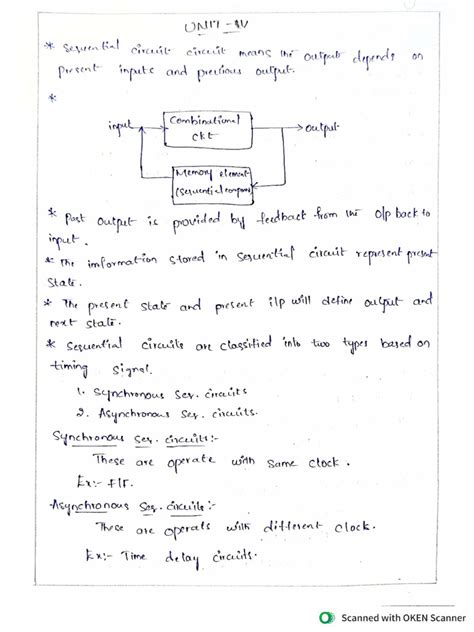 UNIT-IV
* Sequential circuit circuit means the output depends on
Present inputs and previous output.
*
Combinational
ckt
input
output
Memory element
(Sequential compone
* Past output is provided by feedback from the o/p back to
input.
* The imformation stored in sequential circuit represent present
State.
* The present state and present i/p will define output and
next state.
* Sequential circuits are classified into two types based on
timing signal.
1. Synchronous Seq. circuits
2. Asynchronous Seq. circuits.
Synchronous Seq. circuits:-
These are operate with same clock.
Ex:- F/F.
Asynchronous Seq. circuits:-
These are operats with different clock.
Ex:- Time delay circuits.
Scanned with OKEN Scanner